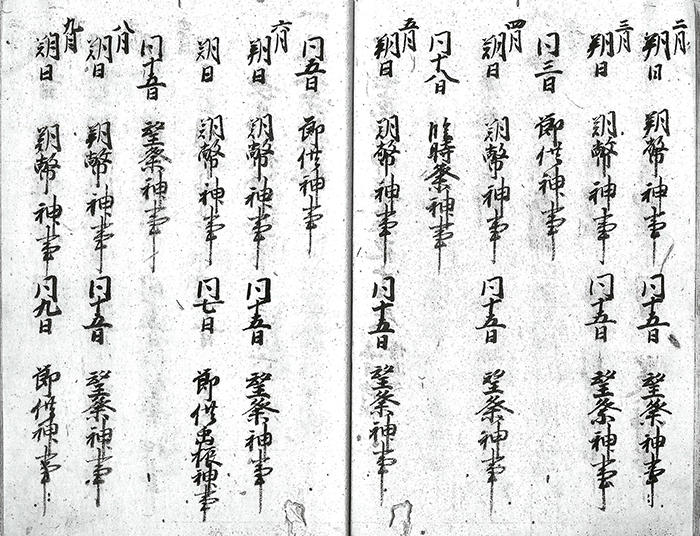 二月朔日 朔幣神事 同十五日 望祭神事
三月朔日 朔幣神事 同十五日 望祭神事
同三日 節供神事
四月朔日 朔幣神事 同十五日 望祭神事
同十八日 臨時祭神事
五月朔日 朔幣神事 同十五日 望祭神事
同五日 節供神事
六月朔日 朔幣神事 同十五日 望祭神事
朔日 朔幣神事 同七日 節供神事
同十五日 望祭神事
八月朔日 朔幣神事 同十五日 望祭神事
九月朔日 朔幣神事 同九日 節供神事